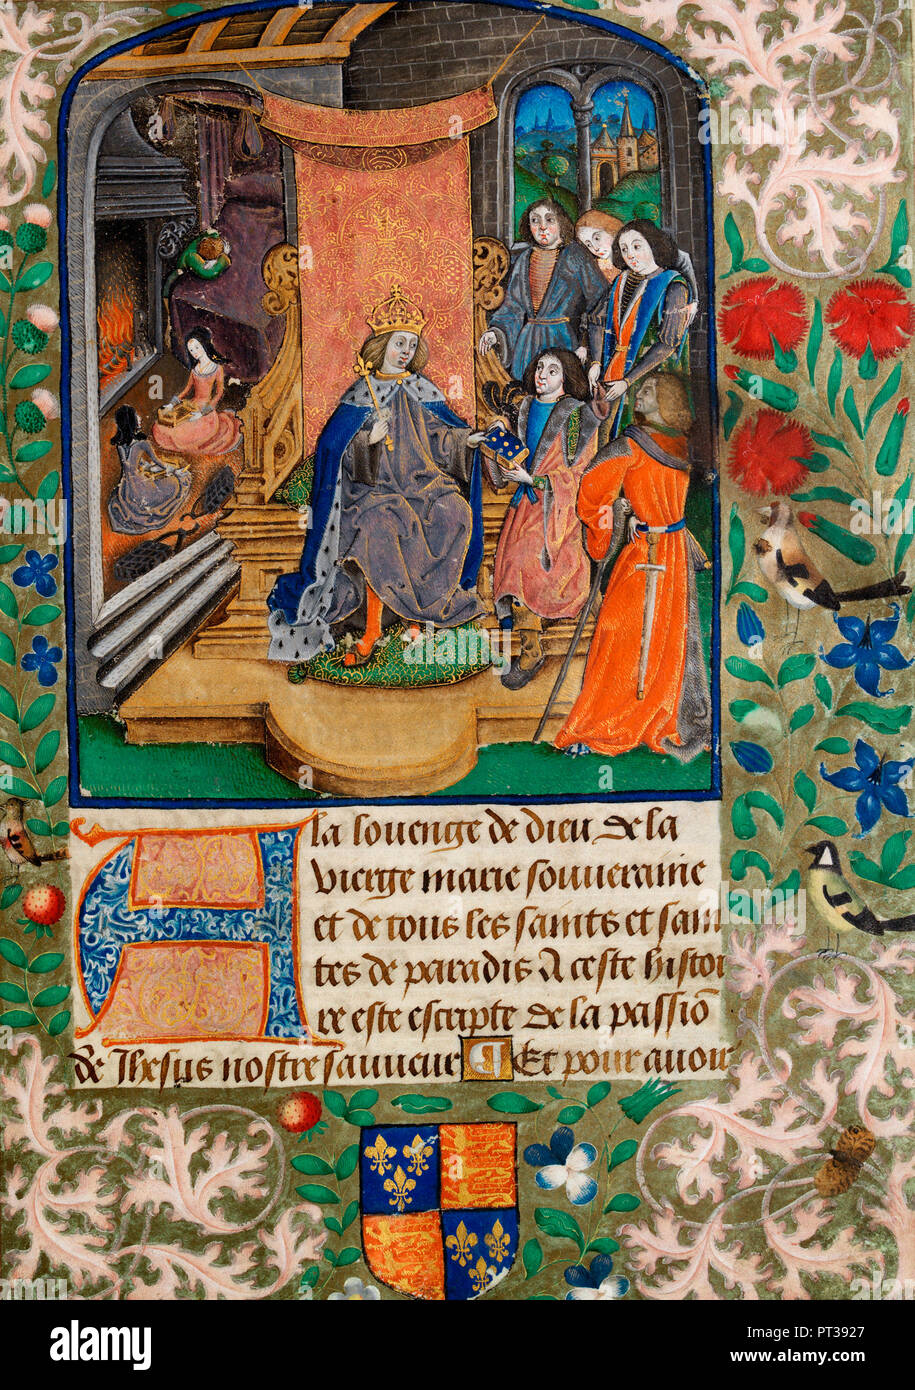 A la louenge de dieu & de la
vierge marie souueraine
et de tous les saints et sain
tes de paradis A ceste histoi
re est escripte de la passiō
de Ihesus nostre sauueur Et pour auoir
alamy
Image ID: PT3927
www.alamy.com